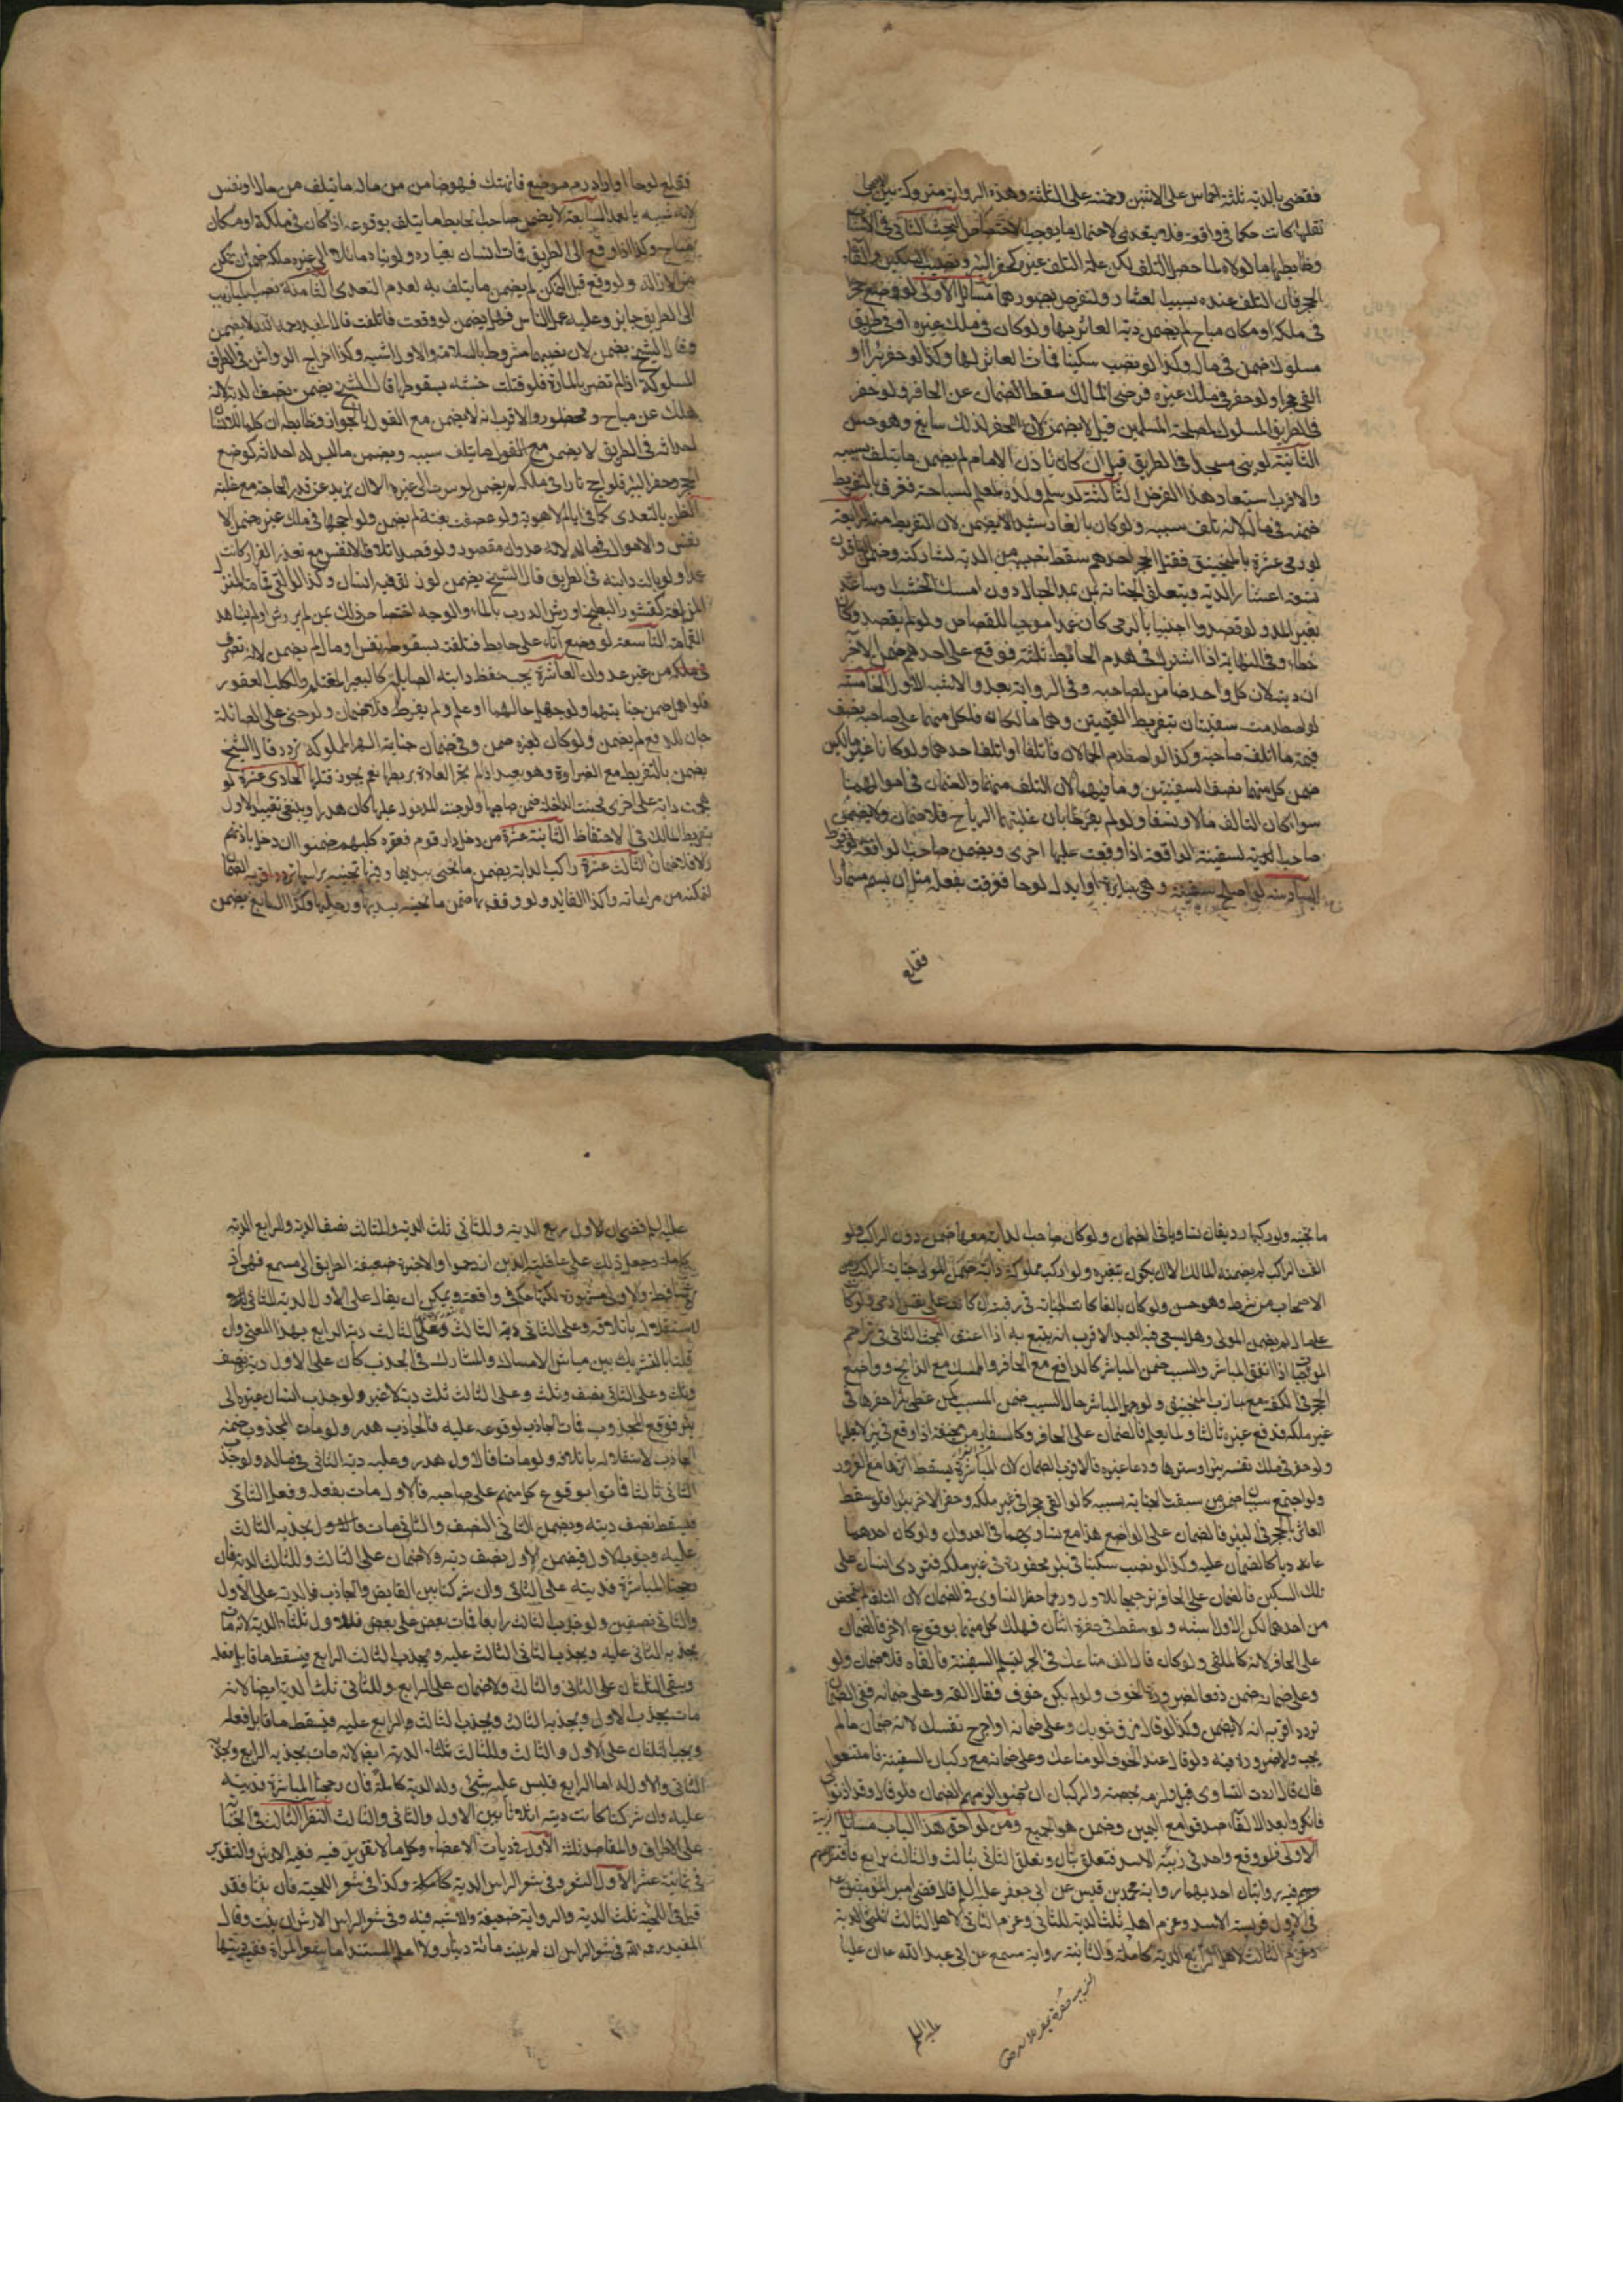 فقضى بالدية ثلثة اخماس على الاثنين وخمسة على الثلثة وهذه الرواية متروكة بين
نقلها كانت حكما في واقعة فلا يتعدى لاحتمال ما يوجب الاختصاص البحث الثاني في الاسباب
وضابطها ما لولاه لما حصل التلف لكن علة التلف غيره كحفر البئر ونصب السكين والقاء
الحجر فان التلف عنده بسبب العثار ولنفرض لصورها مسائل الاولى لو وضع حجرا
في ملكه او مكان مباح لم يضمن دية العاثر بها ولو كان في ملك غيره او في طريق
مسلوك ضمن في ماله وكذا لو نصب سكينا فمات العاثر بها وكذا لو حفر بئرا او
القى حجرا ولو حفر في ملك غيره فرضى المالك سقط الضمان عن الحافر ولو حفر
في الطريق المسلوك لمصلحة المسلمين قيل لا يضمن لان الحفر لذلك سايغ وهو حسن
الثانية لو بنى مسجدا في الطريق قيل ان كان باذن الامام لم يضمن ما يتلف بسببه
والاقرب استبعاد هذا الفرض الثالثة لو سلم ولده لمعلم السباحة فغرق بالتفريط
ضمنه في ماله لانه تلف بسببه ولو كان بالغا رشيدا لا يضمن لان التفريط منه الرابعة
لو رمى عشرة بالمنجنيق فقتل الحجر احدهم سقط نصيبه من الدية لمشاركته وضمن الباقون
تسعة اعشار الدية ويتعلق الجناية بمن يمد الحبال دون من امسك الخشب وساعد
بغير المد ولو قصدوا اجنبيا بالرمى كان عمدا موجبا للقصاص ولو لم يقصدوه كان
خطاء وفي النهاية اذا اشترك في هدم الحائط ثلثة فوقع على احدهم ضمن الآخر
ان ديته لان كل واحد ضامن لصاحبه وفي الرواية بعد والاشبه الاول الخامسة
لو اصطدمت سفينتان بتفريط القيمين وهما مالكان فلكل منهما على صاحبه نصف
قيمة ما اتلف صاحبه وكذا لو اصطدم الحمالان فاتلفا او اتلف احدهما ولو كانا غير مالكين
ضمن كل منهما نصف السفينتين وما فيهما لان التلف منهما والضمان في اموالهما
سواء كان التالف مالا او نفسا ولو لم يفرطا بان غلبتهما الرياح فلا ضمان ولا يضمن
صاحب السفينة الواقفة اذا وقعت عليها اخرى ويضمن صاحب الواقعة لو فرط
السادسة لو اصلح سفينة وهي سايرة او ابدل لوحا فغرقت بفعله مثل ان يسمر مسمارا
فقلع
فقلع لوحا او اراد رم موضع فانهتك فهو ضامن من ماله ما يتلف من مال او نفس
لانه شبيه بالعمد السابعة لا يضمن صاحب الحايط ما يتلف بوقوعه اذا كان في ملكه او مكان
مباح وكذا لو وقع الى الطريق فمات انسان بغباره ولو بناه مائلا الى غير ملكه ضمن ان تمكن
من الازالة ولو وقع قبل التمكن لم يضمن ما يتلف به لعدم التعدى الثامنة نصب الميازيب
الى الطريق جايز وعليه عمل الناس فهل يضمن لو وقعت فاتلفت قال المفيد رحمه الله لا يضمن
وقال الشيخ يضمن لان نصبها مشروط بالسلامة والاول اشبه وكذا اخراج الرواشن في الطرق
المسلوكة اذا لم تضر بالمارة فلو قتلت خشبة بسقوطها قال الشيخ يضمن نصف الدية لانه
هلك عن مباح ومحظور والاقرب انه لا يضمن مع القول بالجواز وضابطه ان كلما للانسان
احداثه في الطريق لا يضمن مع القول ما يتلف بسببه ويضمن ما ليس له احداثه كوضع
الحجر وحفر البئر فلو اجج نارا في ملكه لم يضمن لو سرت الى غيره الا ان يزيد عن قدر الحاجة مع غلبة
الظن بالتعدى كما في ايام الاهوية ولو عصفت بغتة لم يضمن ولو اججها في ملك غيره ضمن الا
نفس والاموال في ماله لانه عدوان مقصود ولو قصد اتلاف الانفس مع تعذر الفرار كانت
عمدا ولو بالت دابته في الطريق قال الشيخ يضمن لو زلق فيه انسان وكذا لو القى قمامة المنزل
المزلقة كقشور البطيخ او رش الدرب بالماء والوجه اختصاص ذلك بمن لم ير الرش او لم يشاهد
القمامة التاسعة لو وضع اناء على حايط فتلف بسقوطه نفس او مال لم يضمن لانه تصرف
في ملكه من غير عدوان العاشرة يجب حفظ دابته الصايلة كالبعير المغتلم والكلب العقور
فلو اهمل ضمن جنايتهما ولو جهل حالهما او علم ولم يفرط فلا ضمان ولو جنى على الصائلة
جان للدفع لم يضمن ولو كان لغيره ضمن وفي ضمان جناية الهرة المملوكة تردد قال الشيخ
يضمن بالتفريط مع الضراوة وهو بعيد اذ لم تجر العادة بربطها نعم يجوز قتلها الحادى عشرة لو
هجمت دابة على اخرى فجنت الداخلة ضمن صاحبها ولو جنت المدخول عليها كان هدرا وينبغى تقييد الاول
بتفريط المالك في الاحتفاظ الثانية عشرة من دخل دار قوم فعقره كلبهم ضمنوا ان دخل باذنهم
والا فلا ضمان الثالث عشرة راكب الدابة يضمن ما تجنى بيديها وفيما تجنيه براسها تردد اقربه الضمان
لتمكنه من مراعاته وكذا القايد ولو وقف بها ضمن ما تجنيه بيديها ورجليها وكذا السايق يضمن
ما تجنيه ولو ركبها رديفان تساويا في الضمان ولو كان صاحب الدابة معها ضمن دون الراكب ولو
القت الراكب لم يضمنه المالك الا ان يكون بتنفيره ولو اركب مملوكه دابة ضمن المولى جناية الراكب ومن
الاصحاب من شرط وهو حسن ولو كان بالغا كانت الجناية في رقبته ان كانت على نفس آدمى ولو كانت
على مال لم يضمن المولى وهل يسعى فيه العبد الاقرب انه يتبع به اذا اعتق البحث الثالث في تزاحم
الموجبات اذا اتفق المباشر والسبب ضمن المباشر كالدافع مع الحافر والممسك مع الذابح وواضع
الحجر في الكفة مع جاذب المنجنيق ولو جهل المباشر حال السبب ضمن المسبب كمن غطى بئرا حفرها في
غير ملكه فدفع غيره ثالثا ولما يعلم فالضمان على الحافر وكالفار من مخيفة اذا وقع في بئر لا يعلمها
ولو حفر في ملك نفسه بئرا وسترها ودعا غيره فالاقرب الضمان لان المباشرة يسقط اثرها مع الغرور
ولو اجتمع سببان ضمن من سبقت الجناية بسببه كما لو القى حجرا في غير ملكه وحفر الاخر بئرا فلو سقط
العاثر بالحجر في البئر فالضمان على الواضع هذا مع تساويهما في العدوان ولو كان احدهما
عاديا كان الضمان عليه وكذا لو نصب سكينا في بئر محفورة في غير ملكه فتردى انسان على
تلك السكين فالضمان على الحافر ترجيحا للاول وربما خطر التساوى في الضمان لان التلف لم يتمحض
من احدهما لكن الاول اشبه ولو سقط في حفرة اثنان فهلك كل منهما بوقوع الاخر فالضمان
على الحافر لانه كالملقى ولو كان قال الق متاعك في البحر لتسلم السفينة فالقاه فلا ضمان ولو
وعلى ضمانه ضمن دفعا لضرورة الخوف ولو لم يكن خوف فقال القه وعلى ضمانه ففى الضمان
تردد اقربه انه لا يضمن وكذا لو قال مزق ثوبك وعلى ضمانه او اجرح نفسك لانه ضمان ما لم
يجب ولا ضرورة فيه ولو قال عند الخوف الق متاعك وعلى ضمانه مع ركبان السفينة فامتنعوا
فان قال اردت التساوى قيل لزمه بحصته والركبان ان رضوا لزمهم الضمان ولو قال وقد اذنوا لى
فانكروا بعد الالقاء صدقوا مع اليمين وضمن هو الجميع ومن لواحق هذا الباب مسائل الزبية
الاولى فلو وقع واحد في زبية الاسد فتعلق بثان وتعلق الثانى بثالث والثالث برابع فافترسهم
ففيه روايتان احديهما رواية محمد بن قيس عن ابى جعفر عليه السلام قال قضى امير المؤمنين ع
في الاول فريسة الاسد وغرم اهله ثلث الدية للثاني وغرم الثاني لاهل الثالث ثلثى الدية
وغرم الثالث لاهل الرابع الدية كاملة والثانية رواية مسمع عن ابى عبد الله ع ان عليا
عليه السلم
عليه السلم قضى ان للاول ربع الدية وللثاني ثلث الدية وللثالث نصف الدية وللرابع الدية
كاملة وجعل ذلك على عاقلة الذين ازدحموا والاخيرة ضعيفة الطريق الى مسمع فهى اذ
ساقطة والاولى مشهورة لكنها حكم في واقعة ويمكن ان يقال على الاول الدية للثاني
لاستقلاله باتلافه وعلى الثاني دية الثالث وعلى الثالث دية الرابع بهذا المعنى وان
قلنا بالتشريك بين مباشر الامساك والمشارك في الجذب كان على الاول دية ونصف
وثلث وعلى الثاني نصف وثلث وعلى الثالث ثلث دية لا غير ولو جذب انسان غيره الى
بئر فوقع المجذوب فمات الجاذب بوقوعه عليه فالجاذب هدر ولو مات المجذوب ضمنه
الجاذب لاستقلاله باتلافه ولو ماتا فالاول هدر وعليه دية الثاني في ماله ولو جذب
الثاني ثالثا فماتوا بوقوع كل منهم على صاحبه فالاول مات بفعله وفعل الثاني
فيسقط نصف ديته ويضمن الثاني النصف والثاني مات بجذبه الثالث
عليه وجذب الاول فيضمن الاول نصف ديته ولا ضمان على الثالث وللثالث الدية فان
رجحنا المباشرة فديته على الثاني وان شركنا بين القابض والجاذب فالدية على الاول
والثاني نصفين ولو جذب الثالث رابعا فمات بعض على بعض فللاول ثلثا الدية لانه مات
بجذبه الثاني عليه وبجذب الثاني الثالث عليه وبجذب الثالث الرابع فيسقط ما قابل فعله
ويبقى الثلثان على الثاني والثالث ولا ضمان على الرابع وللثاني ثلثا الدية ايضا لانه
مات بجذب الاول وبجذبه الثالث وبجذب الثالث الرابع عليه فيسقط ما قابل فعله
ويجب الثلثان على الاول والثالث وللثالث ثلثا الدية ايضا لانه مات بجذبه الرابع وبجذب
الثاني والاول له اما الرابع فليس عليه شئ وله الدية كاملة فان رجحنا المباشرة فديته
عليه وان شركنا كانت ديته اثلاثا بين الاول والثاني والثالث النظر الثالث في الجناية
على الاطراف والمقاصد ثلثة الاول في ديات الاعضاء وكل ما لا تقدير فيه ففيه الارش والتقدير
في ثمانية عشر الاول الشعر وفي شعر الراس الدية كاملة وكذا في شعر اللحية فان نبتا فقد
قيل في اللحية ثلث الدية والرواية ضعيفة والاشبه فيه وفي شعر الراس الارش ان نبت وقال
المفيد رحمه الله في شعر الراس ان لم ينبت مائة دينار ولا اعلم المستند اما شعر المراة ففيه ديتها